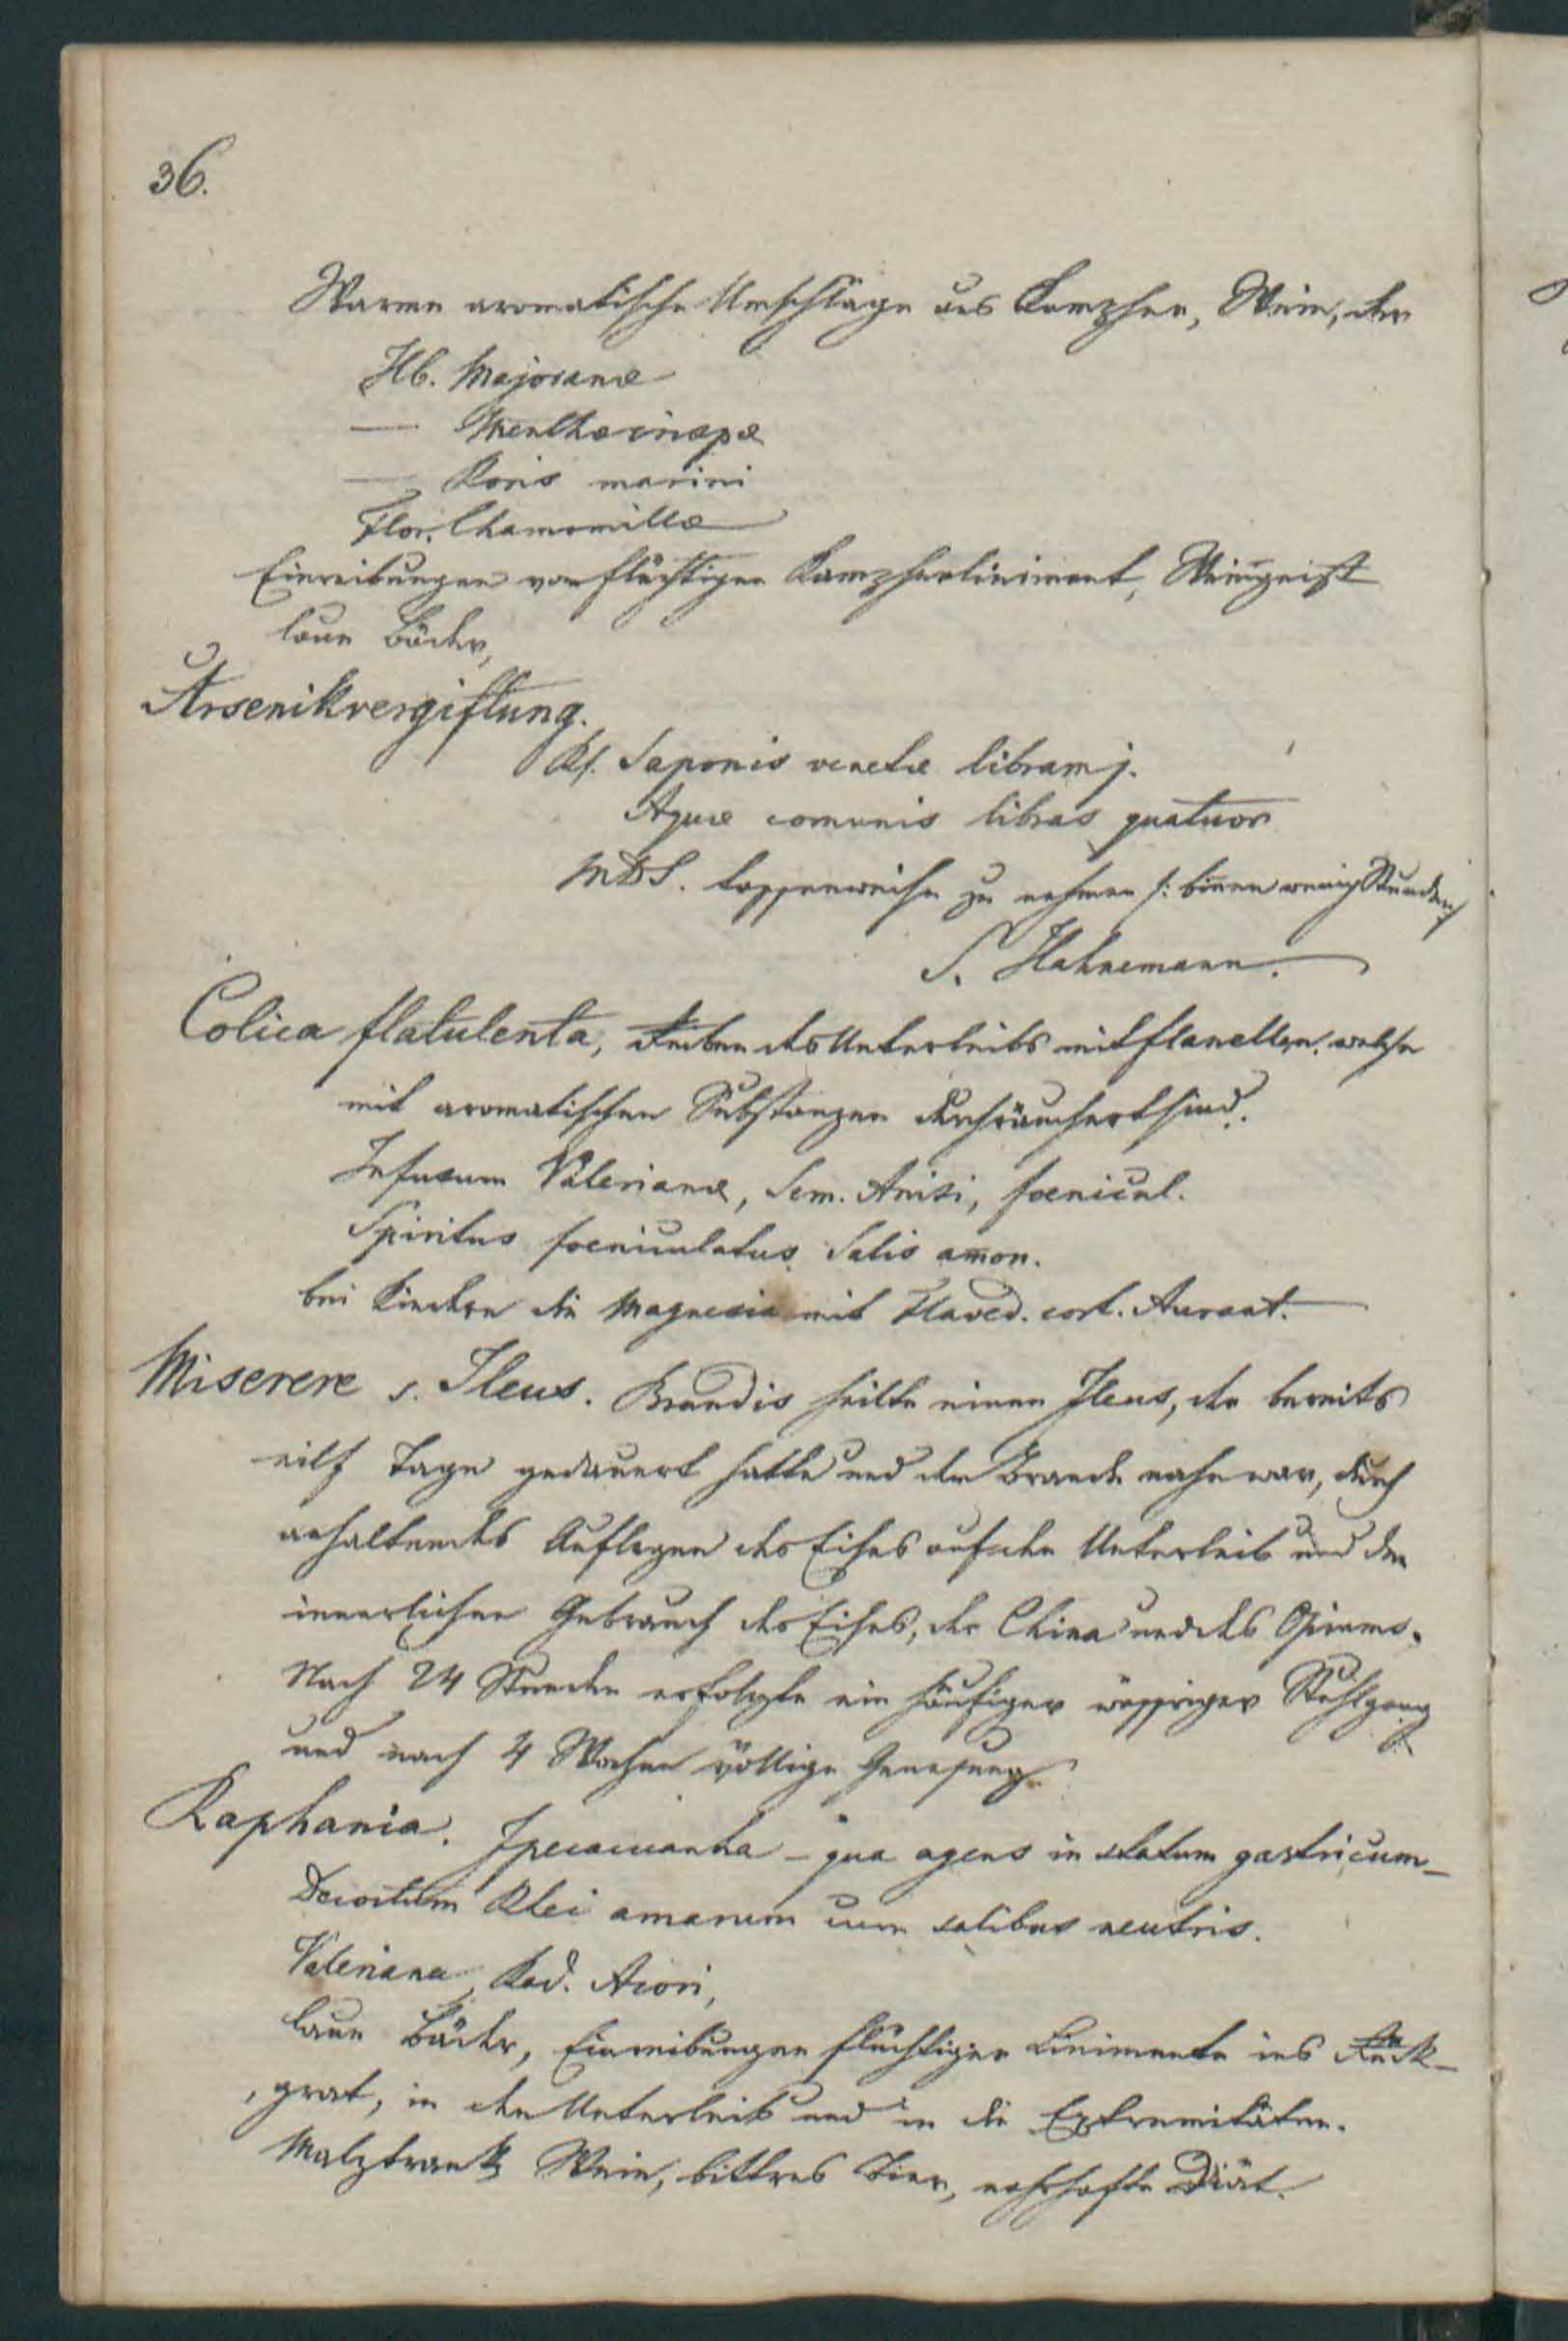 36.
Warme aromatische Umschläge aus Kampher, Wein, der
Hb. Majoranæ
— Menthæ crispæ
— Roris marini
Flor. Chamomillæ
Einreibungen von flüchtigen Kampherliniment, Weingeist
laue Bäder,
Arsenikvergiftung.
Rf. Saponis venetæ libram j.
Aquæ comunis libras quatuor
MDS. tassenweise zu nehmen /: binnen wenig Stunden
S. Hahnemann.
Colica flatulenta, Reiben des Unterleibs mit Flanellen, welche
mit aromatischen Substanzen durchräuchert sind.
Infusum Valerianæ, Sem. Anisi, foenicul.
Spiritus foeniculatus Salis amon.
bei Kindern die Magnesia mit Flaved. cort. Aurant.
Miserere s. Ileus. Brandis heilte einen Ileus, der bereits
eilf Tage gedauert hatte und dem Brande nahe war, durch
anhaltendes Auflegen des Eises auf den Unterleib und den
innerlichen Gebrauch des Eises, der China und des Opiums.
Nach 24 Stunden erfolgte ein häufiger wässriger Stuhlgang
und nach 4 Wochen völlige Genesung.
Raphania. Ipecacuanha – qua agens in statum gastricum –
Decoctum Rhei amarum cum salibus neutris.
Valeriana, Rad. Acori,
laue Bäder, Einreibungen flüchtiger Linimente ins Rück-
grat, in den Unterleib und in die Extremitäten.
Malztrank, Wein, bittres Bier, nahrhafte Diät.